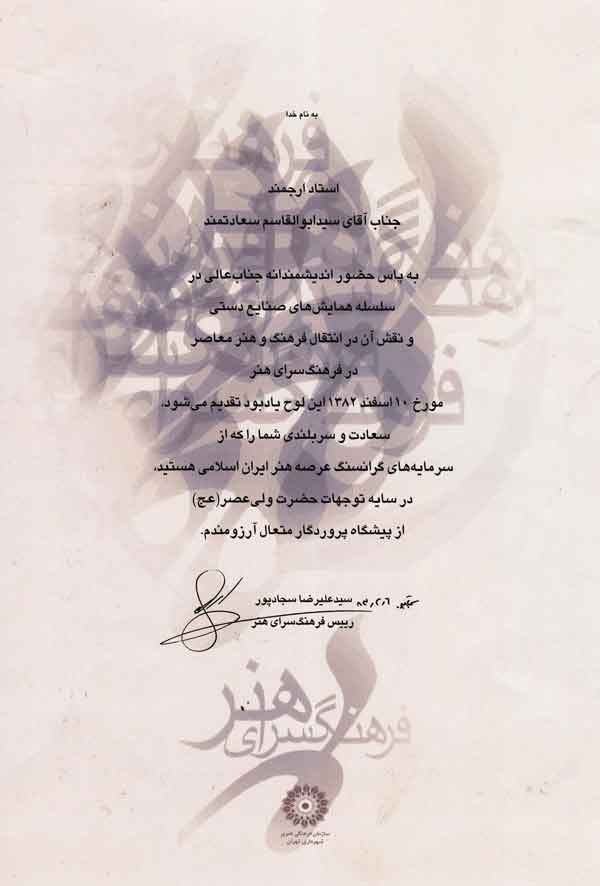 به نام خدا
استاد ارجمند
جناب آقای سیدابوالقاسم سعادتمند
به پاس حضور اندیشمندانه جناب‌عالی در
سلسله همایش‌های صنایع دستی
و نقش آن در انتقال فرهنگ و هنر معاصر
در فرهنگ‌سرای هنر
مورخ ۱۰ اسفند ۱۳۸۲ این لوح یادبود تقدیم می‌شود.
سعادت و سربلندی شما را که از
سرمایه‌های گرانسنگ عرصه هنر ایران اسلامی هستید،
در سایه توجهات حضرت ولی‌عصر(عج)
از پیشگاه پروردگار متعال آرزومندم.
سیدعلیرضا سجادپور
رییس فرهنگ‌سرای هنر
فرهنگسرای هنر
سازمان فرهنگی هنری
شهرداری تهران